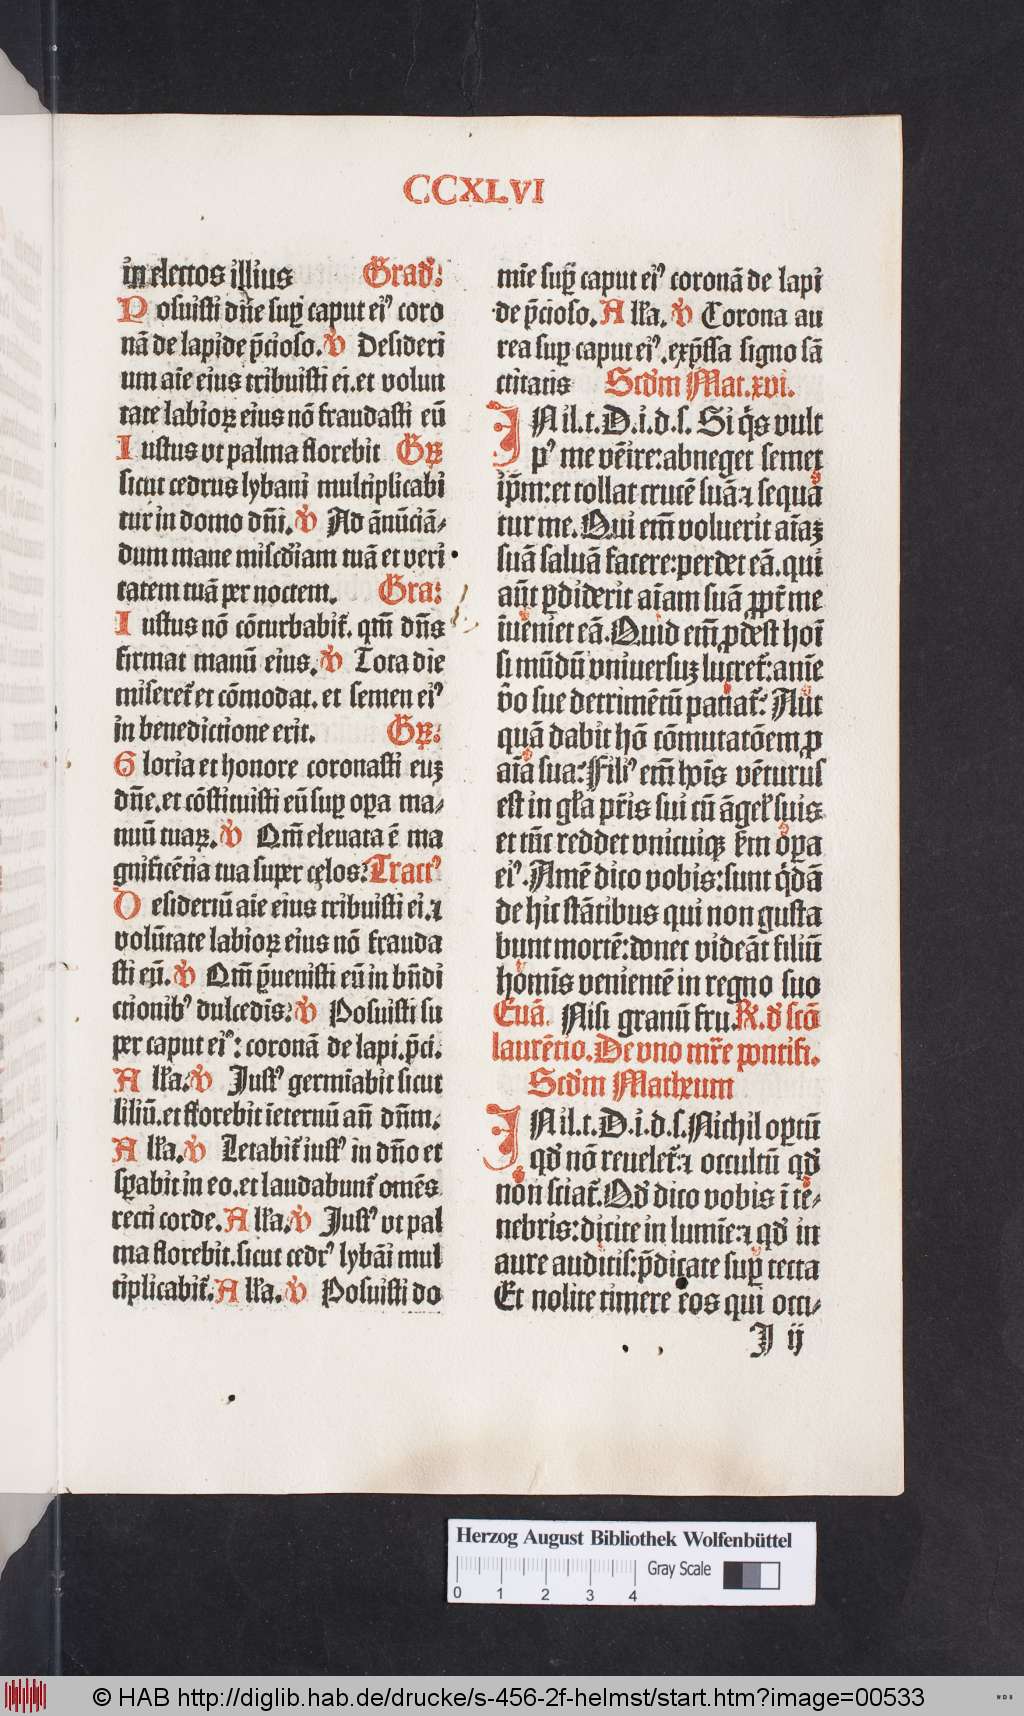 CCXLVI
in electos illius Grad̄:
Posuisti dn̄e suꝑ caput ei⁹ coro
nā de lapide p̄cioso. ℣ Desideri
um aīe eius tribuisti ei. et volun
tate labioꝝ eius nō fraudasti eū
Iustus vt palma florebit Gꝝ
sicut cedrus lybani multiplicabi
tur in domo dn̄i. ℣ Ad ānūciā⸗
dum mane mīscd̄iam tuā et veri
tatem tuā per noctem. Gra:
Iustus nō cōturbabit̄. qm̄ dn̄s
firmat manū eius. ℣ Tota die
miseret̄ et cōmodat. et semen ei⁹
in benedictione erit. Gꝝ:
Gloria et honore coronasti euꝫ
dn̄e. et cōstituisti eū suꝑ oꝑa ma⸗
nuū tuaꝝ. ℣ Qm̄ eleuata ē ma
gnificētia tua super cęlos: Tract⁹
Desideriū aīe eius tribuisti ei. ⁊
volūtate labioꝝ eius nō frauda
sti eū. ℣ Qm̄ p̄uenisti eū in bn̄di
ctionib⁹ dulcedīs: ℣ Posuisti su
per caput ei⁹: coronā de lapi. p̄ci.
Alła. ℣ Just⁹ germīabit sicut
liliū. et florebit īeternū an̄ dn̄m.
Alła. ℣ Letabit̄ iust⁹ in dn̄o et
sꝑabit in eo. et laudabunt̄ omēs
recti corde. Alła. ℣ Just⁹ vt pal
ma florebit. sicut cedr⁹ lybāi mul
tiplicabit̄. Alła. ℣ Posuisti do
mīe suꝑ caput ei⁹ coronā de lapi
de p̄cioso. Alła. ℣ Corona au
rea suꝑ caput ei⁹. exp̄ssa signo sā
ctitatis Scd̄m Mat. xvi.
IN il. t. D. i. d. s. Si q̄s vult
p⁹ me vēire: abneget semet
ip̄m: et tollat crucē suā: ⁊ sequā
tur me. Qui em̄ voluerit aīaꝫ
suā saluā facere: perdet eā. qui
aūt ꝑdiderit aīam suā ꝓpt̄ me
īueniet eā. Quid em̄ ꝓdest hoī
si mūdū vniuersuꝫ lucret̄: anīe
v̄o sue detrimētū patiat̄: Aūt
quā dabit hō cōmutatōem ꝓ
aīa sua: Fili⁹ em̄ hoīs vēturus
est in gła pr̄is sui cū āgeł suis
et tūc reddet vnicuiqꝫ ẜm oꝑa
ei⁹. Amē dico vobis: sunt q̄dā
de hic stātibus qui non gusta
bunt mortē: donec videāt filiū
homīs venientē in regno suo
Euā. Nisi granū fru. R. d̄ scō
laurētio. De vno mr̄e pontifi.
Scd̄m Matheum
IN il. t. D. i. d. s. Nichil oꝑtū
qd̄ nō reuelet̄: ⁊ occultū qd̄
non sciat̄. Qd̄ dico vobis ī te⸗
nebris: dicite in lumīe: ⁊ qd̄ in
aure auditis: p̄dicate suꝑ tecta
Et nolite timere eos qui occi⸗
J ij
Herzog August Bibliothek Wolfenbüttel
Gray Scale
0 1 2 3 4
© HAB http://diglib.hab.de/drucke/s-456-2f-helmst/start.htm?image=00533